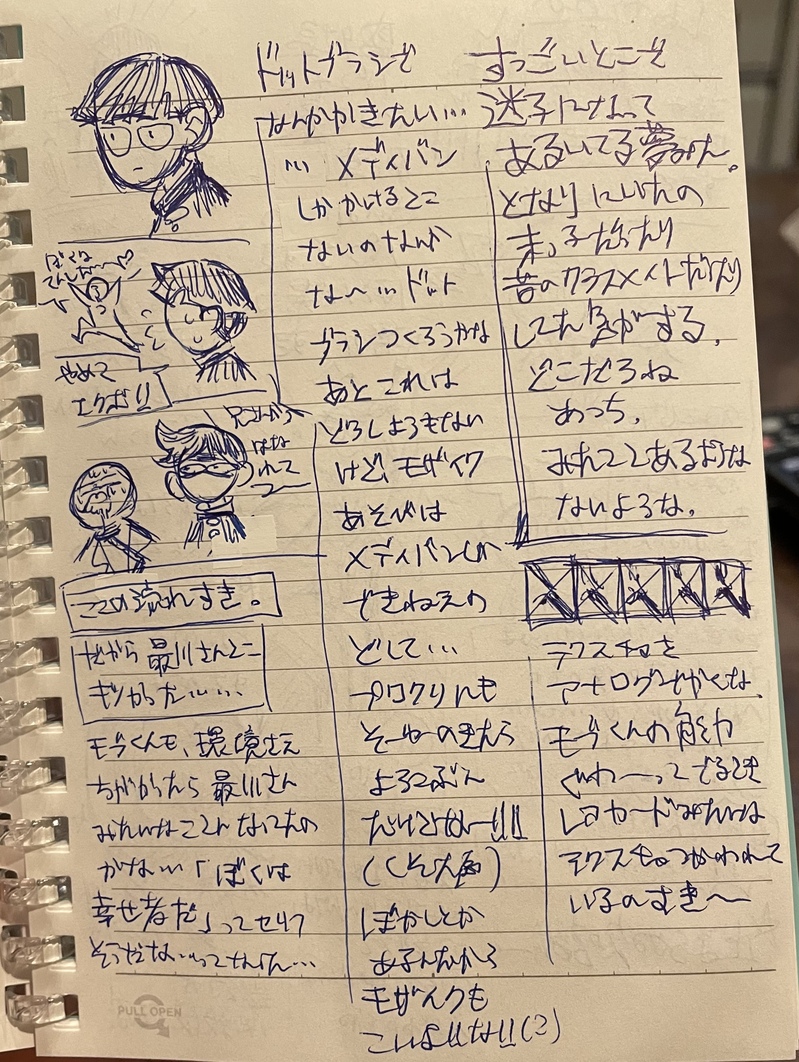 ドットブラシで
なんかかきたい…
… メディバン
しかかけるとこ
ないのなんか
な〜…ドット
ブラシつくろうかな
あとこれは
どうしようもない
けど、モザイク
あそびは
メディバンしか
できねえの
どして…
プロクリにも
そーゆーのきたら
よろこぶん
だけどなー!!!
(くそ大画)
ぼかしとか
あるんだから
モザイクも
こいよ!!な!!(?)
すっごいとこで
迷子になって
あるいてる夢みた。
となりにいたの
末っ子だったり
昔のクラスメイトだったり
してた気がする。
どこだろね
あっち。
みたことあるような
ないような。
テクスチャを
アナログでかくな、
モブくんの能力
ぐわーってでるとき
レコードみたいな
テクスチャつかわれて
いるのすき〜
ぼくは
やめて
エクボ!!
兄さんから
はな
れて
ここの流れすき。
だから 最川さんとこ
モブくんも、環境さえ
ちがかったら 最川さん
みたいなことんなってたの
かな…「ぼくは
幸せ者だ」ってセリフ
そうだな…ってなんた…
PULL OPEN